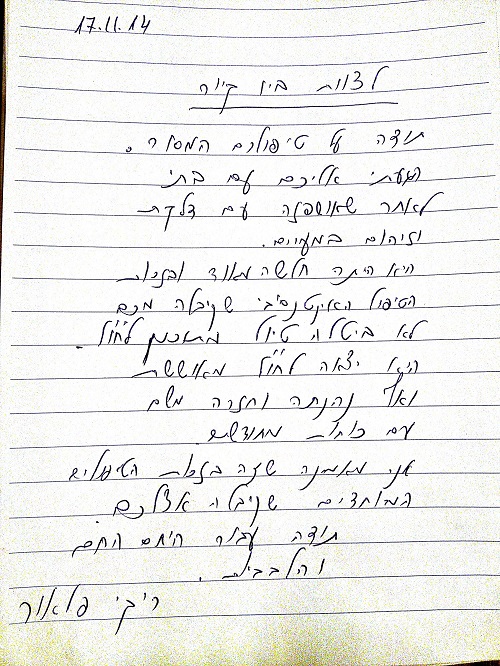 17.11.14
לצוות ביו קיור
תודה על טיפולכם המסור.
הגעתי אליכם עם בתי
לאחר שאושפזה עם דלקת
וזיהום במעיים.
היא היתה חלשה מאוד ובזכות
הטיפול האינטנסיבי שקיבלה מכם
לא ביטלה טיול מתוכנן לחו"ל.
היא יצאה לחו"ל מאוששת
ואף נהנתה וחזרה משם
עם כוחות מחודשים.
אני מאמינה שזה בזכות הטיפולים
המיוחדים שקיבלה אצלכם.
תודה עבור היחס החם
והלבביות.
ריקי פלאור